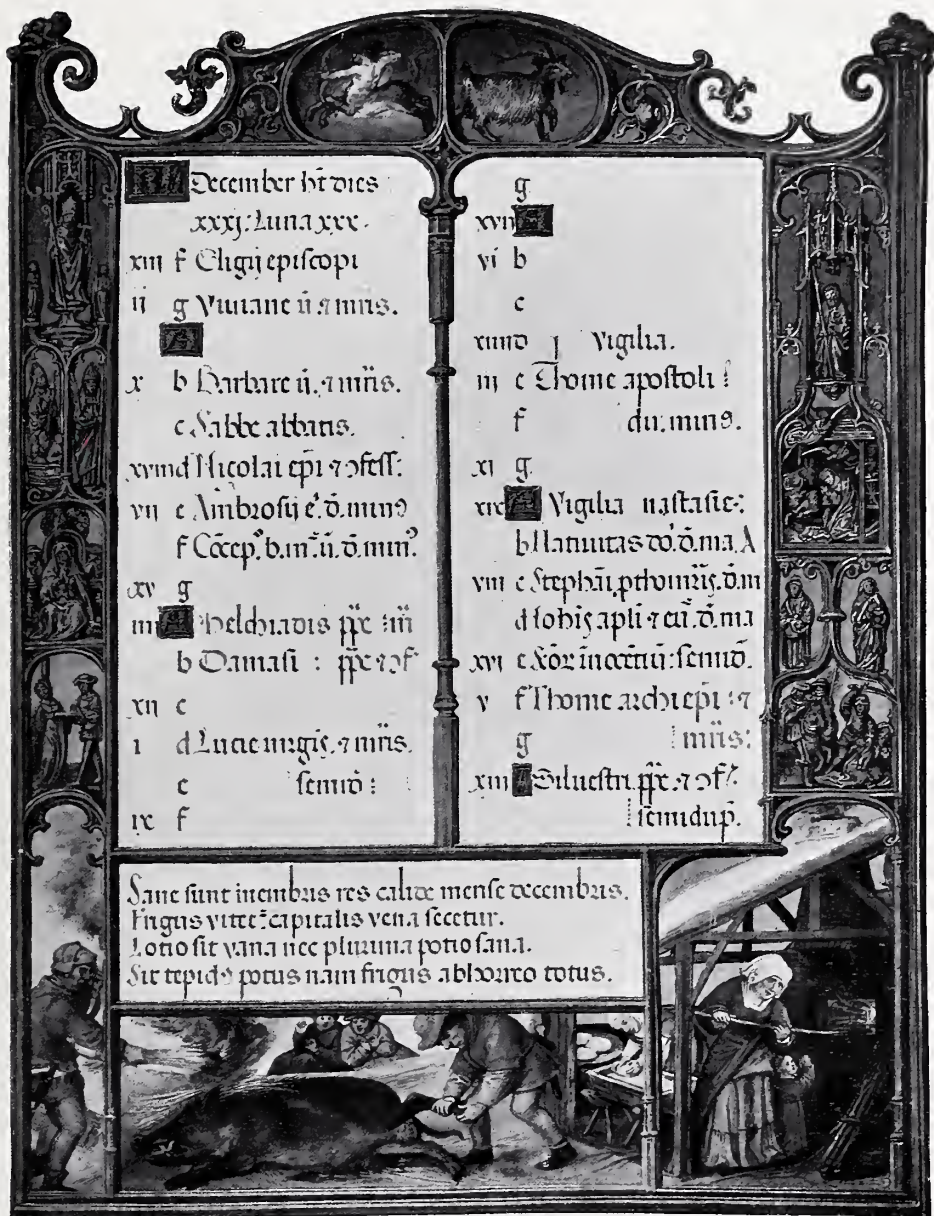 KL December ht dies
xxxj. Luna xxx.
xiii f Eligij episcopi
ii g Viviane v. ⁊ mris.
A
x b Barbare v. ⁊ mris.
c Sabbe abbatis.
xviii d Nicolai epi ⁊ ꝯfess:
vii e Ambrosij e. d. minꝰ
f Cōcep. b. m. v. d. min.
xv g
iiii A Melchiadis ppe m
b Damasi : ppe ⁊ ꝯf
xii c
i d Lucie virgis. ⁊ mris.
e semid :
ix f
g
xvii A
vi b
c
xiiii d Vigilia.
iii e Thome apostoli
f du. minꝰ.
xi g
xix A Vigilia nastasie:
b Nativitas dō. d. ma. A
viii c Stephani pthomris. d. m
d Iohis apli ⁊ eu. d. ma
xvi e xoz inocētiū: semid.
v f Thome archiepi ⁊
g mris:
xiii A Silvestri ppe ⁊ ꝯf.
semidup.
Sane sunt membris res calide mense decembris.
Frigus vitet: capitalis vena scecetur.
Lotio sit vana nec plurima potio sana.
Sit tepidꝰ potus nam frigus abhorreo totus.